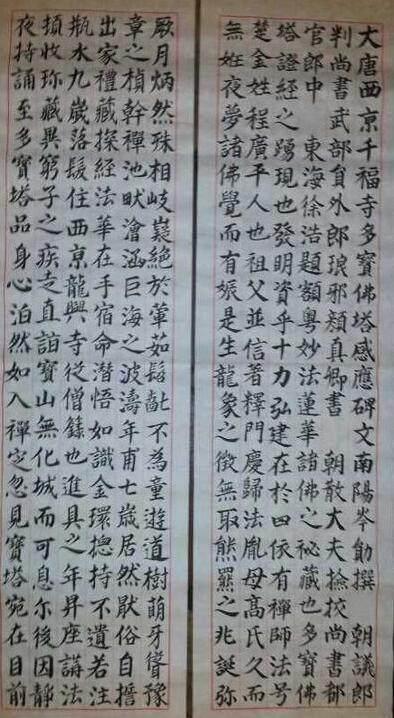 大唐西京千福寺多寶佛塔感應碑文南陽岑勛撰 朝議郎
判尚書武部員外郎琅邪顏真卿書 朝散大夫撿挍尚書都
官郎中 東海徐浩題額粵妙法蓮華諸佛之秘藏也多寶佛
塔證經之踴現也發明資乎十力弘建在於四依有禪師法号
楚金姓程廣平人也祖父並信著釋門慶歸法胤母高氏久而
無姙夜夢諸佛覺而有娠是生龍象之徵無取熊羆之兆誕弥
厥月炳然殊相岐嶷絕於葷茹髫齔不為童遊道樹萌牙聳豫
章之楨幹禪池畎澮涵巨海之波濤年甫七歲居然猒俗自誓
出家禮藏探經法華在手宿命潛悟如識金環揔持不遺若注
瓶水九歲落髮住西京龍興寺從僧籙也進具之年昇座講法
頓收珎藏異窮子之疾走直詣寶山無化城而可息尔後因靜
夜持誦至多寶塔品身心泊然如入禪定忽見寶塔宛在目前